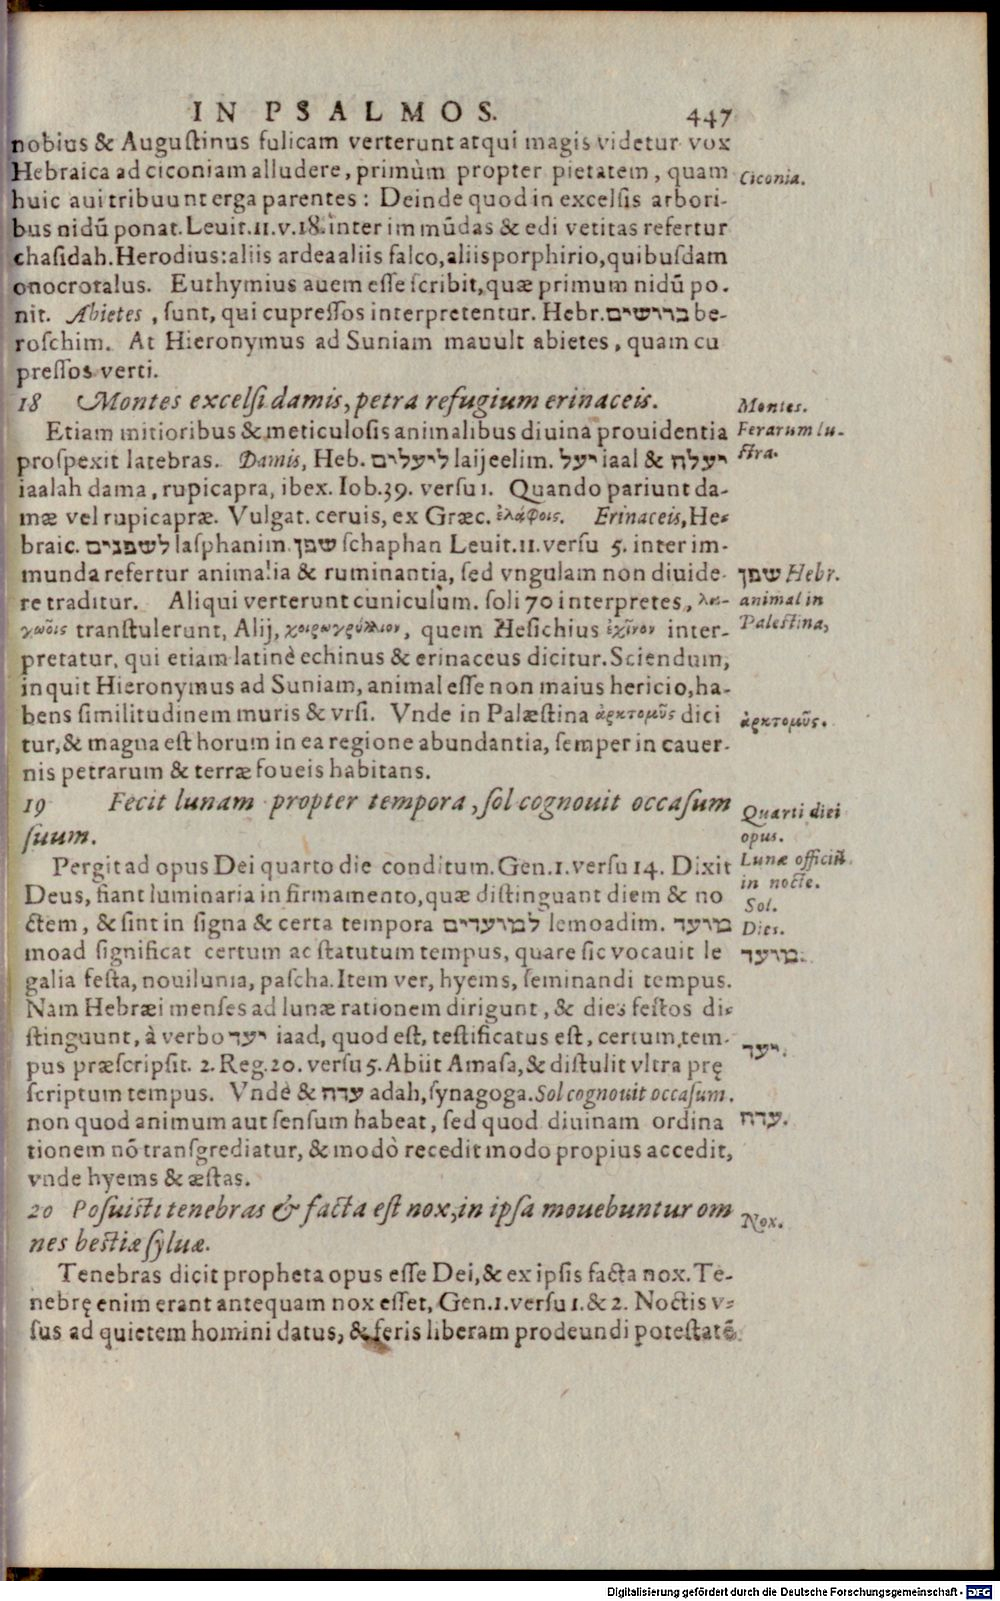 IN PSALMOS. 447
nobius & Auguſtinus fulicam verterunt atqui magis videtur vox
Hebraica ad ciconiam alludere, primùm propter pietatem, quam
huic aui tribuunt erga parentes: Deinde quod in excelſis arbori-
bus nidū ponat. Leuit. 11. v. 18. inter immūdas & edi vetitas refertur
chaſidah. Herodius: aliis ardea aliis falco, aliis porphirio, quibuſdam
onocrotalus. Euthymius auem eſſe ſcribit, quæ primum nidū po-
nit. Abietes, ſunt, qui cupreſſos interpretentur. Hebr. ברושים be-
roſchim. At Hieronymus ad Suniam mauult abietes, quam cu
preſſos verti.
18 Montes excelſi damis, petra refugium erinaceis.
Etiam mitioribus & meticuloſis animalibus diuina prouidentia
proſpexit latebras. Damis, Heb. ליעלים laijeelim. יעל iaal & יעלה
iaalah dama, rupicapra, ibex. Iob. 39. verſu 1. Quando pariunt da-
mæ vel rupicapræ. Vulgat. ceruis, ex Græc. ἐλάφοις. Erinaceis, He-
braic. לשפנים laſphanim. שפן ſchaphan Leuit. 11. verſu 5. inter im-
munda refertur animalia & ruminantia, ſed vngulam non diuide-
re traditur. Aliqui verterunt cuniculum. ſoli 70 interpretes, λα-
γωοῖς tranſtulerunt, Alij, χοιρωγρύλλιον, quem Heſichius ἐχῖνον inter-
pretatur, qui etiam latinè echinus & erinaceus dicitur. Sciendum,
inquit Hieronymus ad Suniam, animal eſſe non maius hericio, ha-
bens ſimilitudinem muris & vrſi. Vnde in Palæſtina ἀρκτομῦς dici
tur, & magna eſt horum in ea regione abundantia, ſemper in cauer-
nis petrarum & terræ foueis habitans.
19 Fecit lunam propter tempora, ſol cognouit occaſum
ſuum.
Pergit ad opus Dei quarto die conditum. Gen. 1. verſu 14. Dixit
Deus, fiant luminaria in firmamento, quæ diſtinguant diem & no
ctem, & ſint in ſigna & certa tempora למועדים lemoadim. מועד
moad ſignificat certum ac ſtatutum tempus, quare ſic vocauit le
galia feſta, nouilunia, paſcha. Item ver, hyems, ſeminandi tempus.
Nam Hebræi menſes ad lunæ rationem dirigunt, & dies feſtos di-
ſtinguunt, à verbo יעד iaad, quod eſt, teſtificatus eſt, certum tem-
pus præſcripſit. 2. Reg. 20. verſu 5. Abiit Amaſa, & diſtulit vltra prę
ſcriptum tempus. Vnde & עדה adah, ſynagoga. Sol cognouit occaſum.
non quod animum aut ſenſum habeat, ſed quod diuinam ordina
tionem nō tranſgrediatur, & modò recedit modo propius accedit,
vnde hyems & æſtas.
20 Poſuiſti tenebras & facta eſt nox, in ipſa mouebuntur om
nes beſtiæ ſyluæ.
Tenebras dicit propheta opus eſſe Dei, & ex ipſis facta nox. Te-
nebrę enim erant antequam nox eſſet, Gen. 1. verſu 1. & 2. Noctis v-
ſus ad quietem homini datus, & feris liberam prodeundi poteſtatē
Ciconia.
Montes.
Ferarum lu-
ſtra.
שפן Hebr.
animal in
Palæſtina,
ἀρκτομῦς.
Quarti diei
opus.
Lunæ officiū
in nocte.
Sol.
Dies.
מועד.
יעד.
עדה.
Nox.
Digitalisierung gefördert durch die Deutsche Forschungsgemeinschaft - DFG